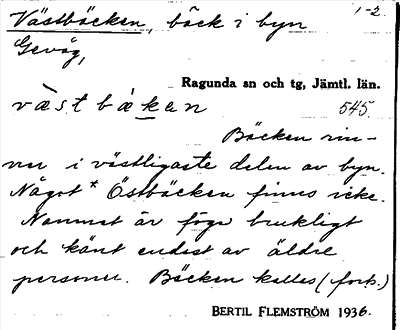 Västbäcken, bäck i byn 1-2.
Gevåg,
Ragunda sn och tg, Jämtl. län.
væ̀stbækan 545
Bäcken rin-
ner i västligaste delen av byn.
Något * Östbäcken finns icke.
Namnet är föga brukligt
och känt endast av äldre
personer. Bäcken kallas (forts.)
BERTIL FLEMSTRÖM 1936.